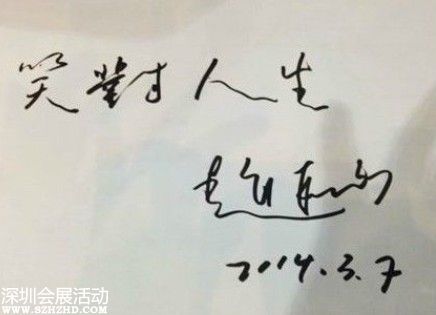 笑對人生
趙
2014.3.7
深圳会展活动
WWW.SZHZHD.COM